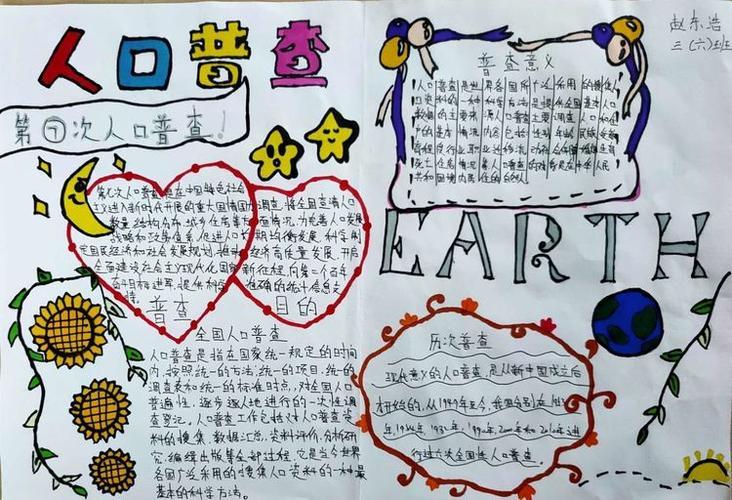 人口普查
第㊆次人口普查!
赵东浩
三(六)班
普查意义
人口普查是世界各国所广泛采用的搜集人
第七次人口普查是在中国特色社会
主义进入新时代开展的重大国情国力调查,将全面查清人口
数量、结构、分布、城乡住房等方面情况,为完善人口发展
战略和政策体系,促进人口长期均衡发展,科学制
定国民经济和社会发展规划,推动经济高质量发展,开启
全面建设社会主义现代化国家新征程,向第二个百年
奋斗目标进军,提供科学准确的统计信息支
持。
普查
目的
EARTH
全国人口普查
人口普查是指在国家统一规定的时间
内,按照统一的方法,统一的项目,统一的
调查表和统一的标准时点,对全国人口
普遍性,逐步逐人地进行的一次性调
查登记。人口普查工作包括对人口普查资
料的搜集,数据汇总,资料评价,分析研
究,编辑出版等全部过程,它是当今世界
各国广泛采用的搜集人口资料的一种最
基本的科学方法。
历次普查
现代意义的人口普查,是从新中国成立后
才开始的,从1949年至今,我国分别在
年,1990年,2000年和2010年进
行过六次全国性人口普查。